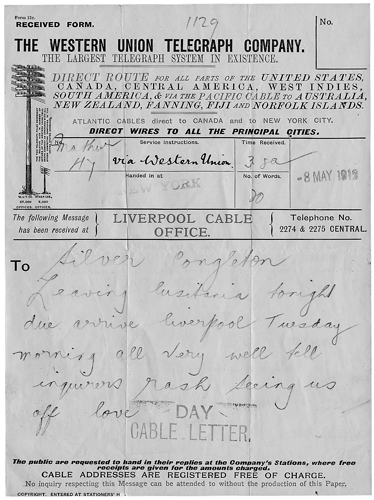 Form 12c.
RECEIVED FORM.
1129
No.
THE WESTERN UNION TELEGRAPH COMPANY.
THE LARGEST TELEGRAPH SYSTEM IN EXISTENCE.
DIRECT ROUTE FOR ALL PARTS OF THE UNITED STATES,
CANADA, CENTRAL AMERICA, WEST INDIES,
SOUTH AMERICA, & VIA THE PACIFIC CABLE TO AUSTRALIA,
NEW ZEALAND, FANNING, FIJI AND NORFOLK ISLANDS.
ATLANTIC CABLES direct to CANADA and to NEW YORK CITY.
DIRECT WIRES TO ALL THE PRINCIPAL CITIES.
Service Instructions.
Time Received.
Hy
via Western Union.
Handed in at
No. of Words.
NEW YORK
-8 MAY 1912
The following Message
has been received at
LIVERPOOL CABLE
OFFICE.
Telephone No.
2274 & 2275 CENTRAL.
To Silver Congleton
Leaving lusitania tonight
due arrive liverpool Tuesday
morning all very well tell
inquirers rash seeing us
off love
DAY
CABLE LETTER.
The public are requested to hand in their replies at the Company's Stations, where free
receipts are given for the amounts charged.
CABLE ADDRESSES ARE REGISTERED FREE OF CHARGE.
No inquiry respecting this Message can be attended to without the production of this Paper.
COPYRIGHT. ENTERED AT STATIONERS' H